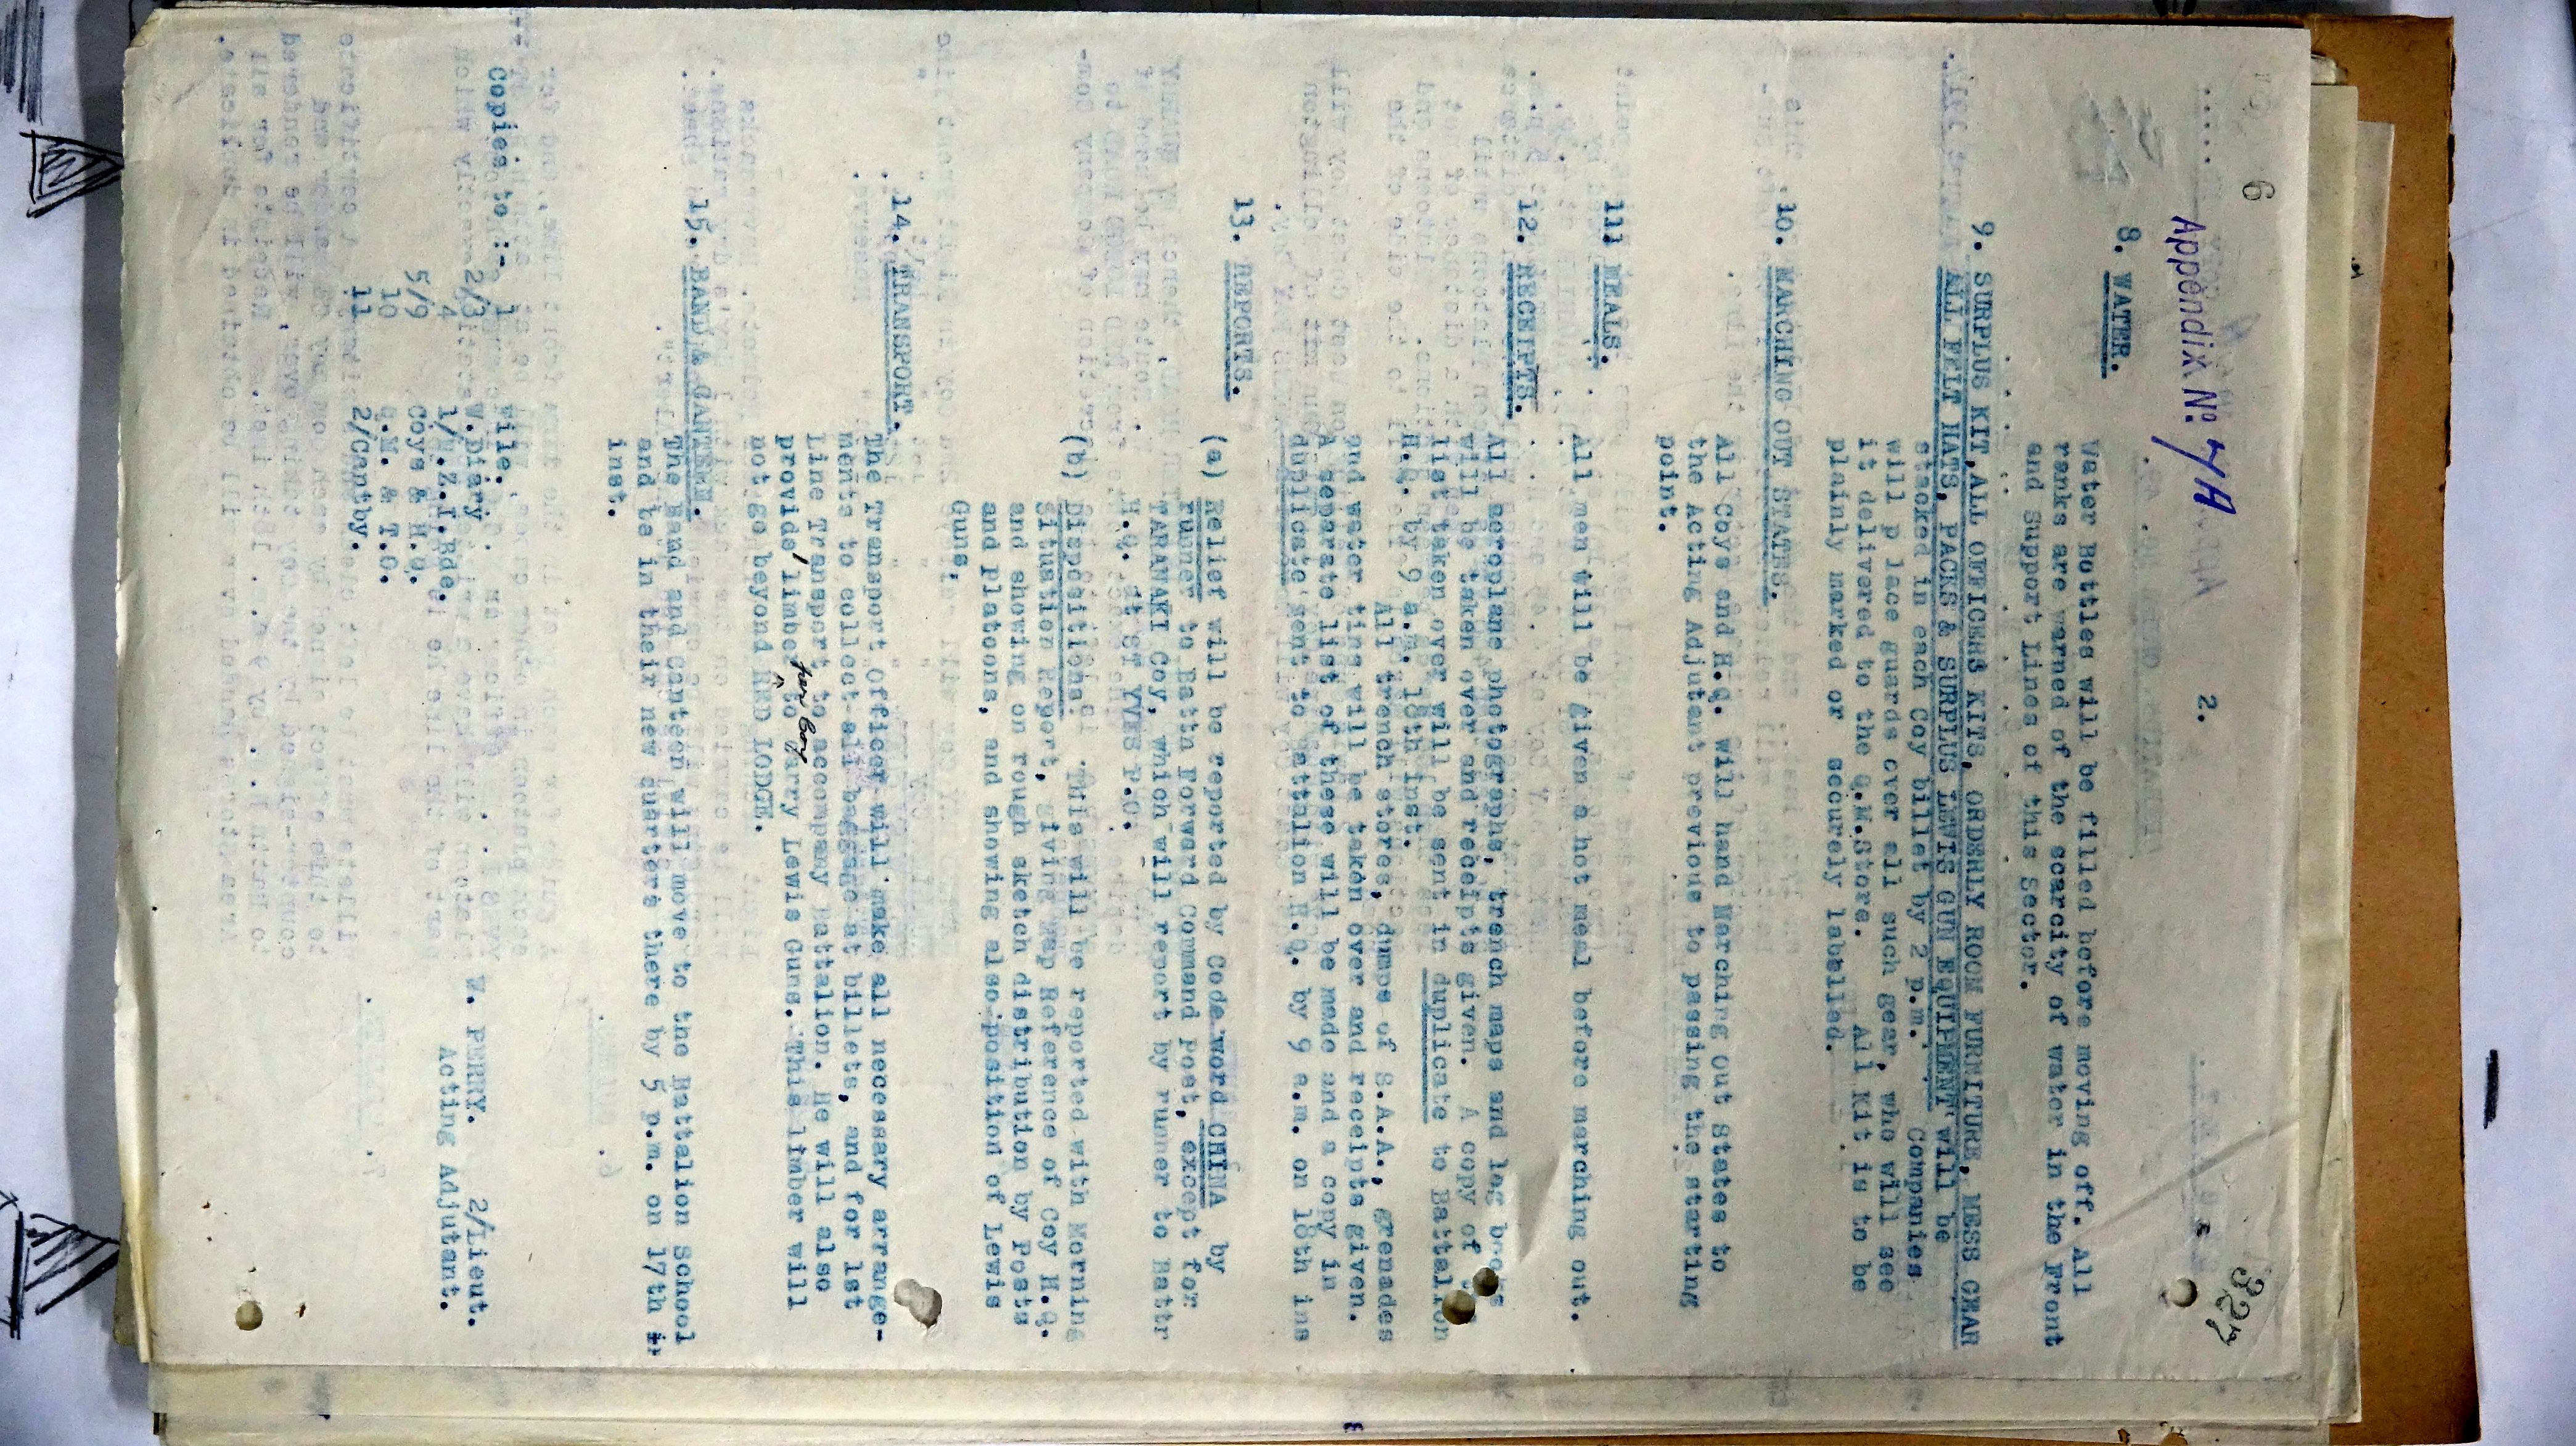 6
327
Appendix No 7/A
2.
8. WATER.
Water Bottles will be filled before moving off. All
ranks are warned of the scarcity of water in the Front
and Support Lines of this Sector.
9. SURPLUS KIT, ALL OFFICERS KITS, ORDERLY ROOM FURNITURE, MESS GEAR
ALL FELT HATS, PACKS & SURPLUS LEWIS GUN EQUIPMENT will be
stacked in each Coy billet by 2 p.m. Companies
will p lace guards over all such gear, who will see
it delivered to the Q.M.Store. All Kit is to be
plainly marked or securely labelled.
10. MARCHING OUT STATES.
All Coys and H.Q. will hand Marching Out States to
the Acting Adjutant previous to passing the starting
point.
11. MEALS.
All men will be given a hot meal before marching out.
12. RECEIPTS.
All aeroplane photographs, trench maps and log books
will be taken over and receipts given. A copy of
list taken over will be sent in duplicate to Battalion
H.Q. by 9 a.m. 18th inst.
All trench stores, dumps of S.A.A., grenades
and water tins will be taken over and receipts given.
A separate list of these will be made and a copy in
duplicate sent to Battalion H.Q. by 9 a.m. on 18th ins
13. REPORTS.
(a) Relief will be reported by Code word CHINA by
runner to Battn Forward Command Post, except for
TARANAKI Coy, which will report by runner to Battr
H.Q. at ST YVES P.O.
(b) Dispositions. This will be reported with Morning
Situation Report, giving Map Reference of Coy H.Q.
and showing on rough sketch distribution by Posts
and Platoons, and showing also position of Lewis
Guns.
14. TRANSPORT.
The Transport Officer will make all necessary arrange-
ments to collect all baggage at billets, and for 1st
Line Transport to accompany Battalion. He will also
provide 1 limber per Coy to carry Lewis Guns. This limber will
not go beyond RED LODGE.
15. BAND & CANTEEN.
The Band and Canteen will move to the Battalion School
and be in their new quarters there by 5 p.m. on 17th
inst.
W. PERRY. 2/Lieut.
Acting Adjutant.
Copies to :- 1 File.
2/3 W.Diary
4 1/N.Z.I.Bde.
5/9 Coys & H.Q.
10 Q.M. & T.O.
11 2/Cantby.